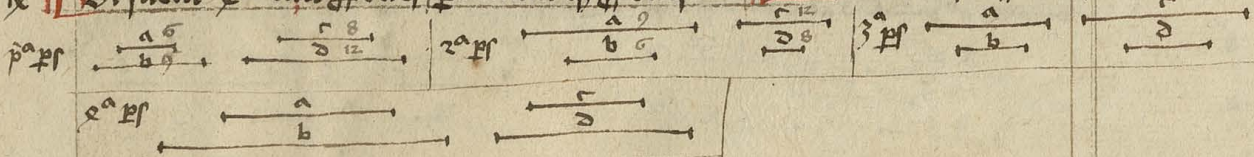 pª ps a 6 b 9 c 8 d 12 2ª ps a 9 b 6 c 12 d 8 3ª ps a b c d
4ª ps a b c d